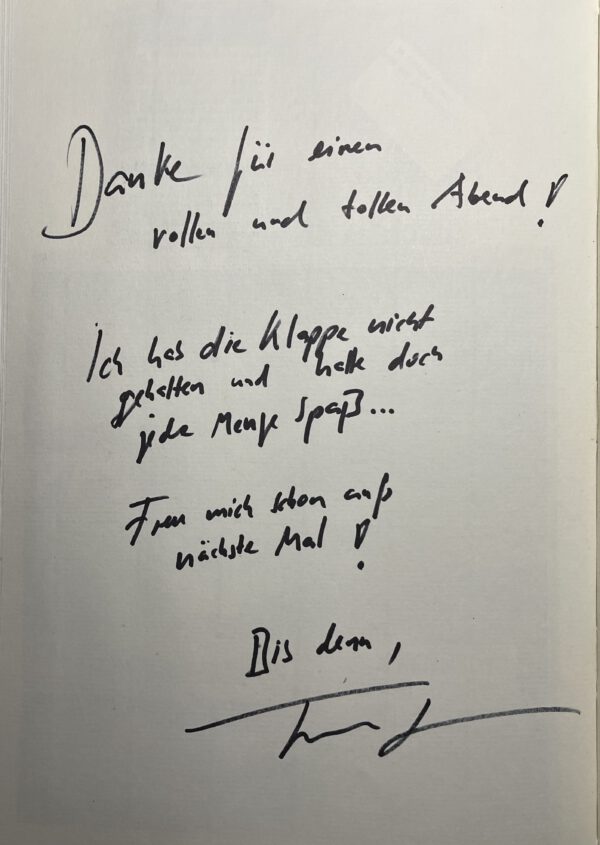 Danke für einen
vollen und tollen Abend!
Ich hab die Klappe nicht
gehalten und hatte doch
jede Menge Spaß...
Freu mich schon aufs
nächste Mal!
Bis denn,